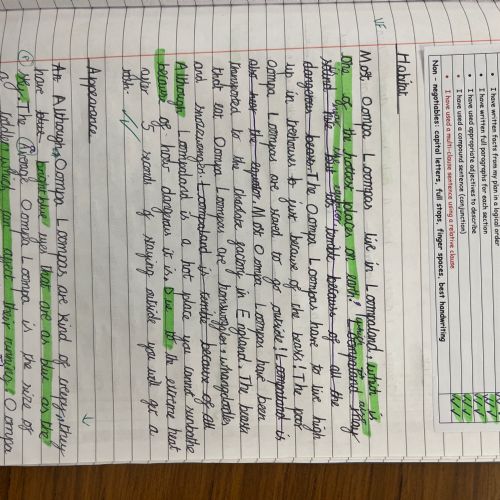 I have written facts from my plan in a logical order
I have written full paragraphs for each section
I have used appropriate adjectives to describe
I have used a compound sentence (conjunction)
I have used a multi-clause sentence using a relative clause
Non - negotiables: capital letters, full stops, finger spaces, best handwriting
VF
Habitat
Most Oompa Loompas live in Loompaland, which is
one of the hottest places on earth. Loompaland may
sound nice but it's terrible because of all the
dangerous beasts. The Oompa Loompas have to live high
up in treehouses to just because of the beasts! The poor
Oompa Loompas are scared to go outside! Loompaland is
also near the equator. Most Oompa Loompas have been
transported to the chocolate factory in England. The beasts
that eat Oompa Loompas are hornswogglers, whangdoodles
and snozzwangers. Loompaland is terrible because of all
Although Loompaland is a hot place you cannot sunbathe
because of how dangerous it is. Due to the extreme heat
after 5 seconds of staying outside you will get a
rash.
Appearance
Although Oompa Loompas are kind of ugly, they
have bright blue eyes that are as blue as the
sky. The Average Oompa Loompa is the size of
a toddler which can affect their running! Oompa